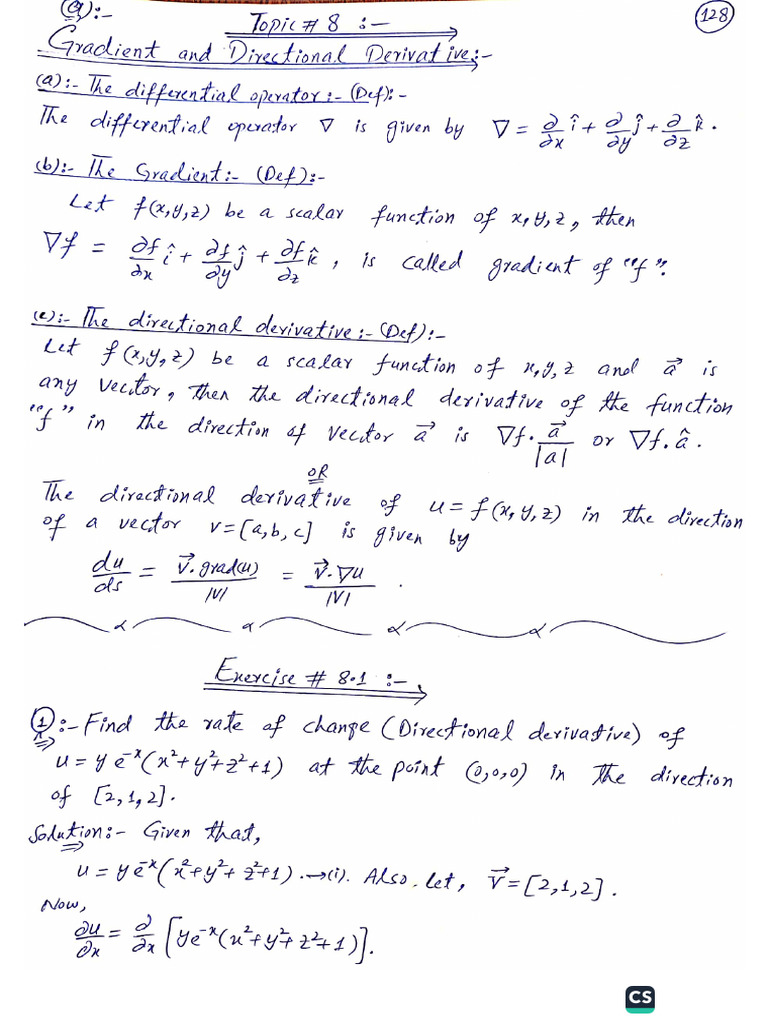 (9):-
Topic # 8 :-
(128)
Gradient and Directional Derivative:-
(a):- The differential operator:- (Def):-
The differential operator ∇ is given by ∇ = ∂/∂x î + ∂/∂y ĵ + ∂/∂z k̂ .
(b):- The Gradient:- (Def):-
Let f(x,y,z) be a scalar function of x,y,z, then
∇f = ∂f/∂x î + ∂f/∂y ĵ + ∂f/∂z k̂ , is called gradient of "f".
(c):- The directional derivative:- (Def):-
Let f(x,y,z) be a scalar function of x,y,z and a⃗ is
any vector, then the directional derivative of the function
"f" in the direction of vector a⃗ is ∇f. a⃗/|a| or ∇f. â .
OR
The directional derivative of u = f(x,y,z) in the direction
of a vector v=[a,b,c] is given by
du/ds = v⃗.grad(u)/|V| = v⃗.∇u/|V| .
Exercise # 8.1 :-
(1):- Find the rate of change (Directional derivative) of
u = y e^-x (x²+y²+z²+1) at the point (0,0,0) in the direction
of [2,1,2].
Solution:- Given that,
u = y e^-x (x²+y²+z²+1). →(i). Also, let, V⃗ = [2,1,2].
Now,
∂u/∂x = ∂/∂x [ye^-x (x²+y²+z²+1)].
CS